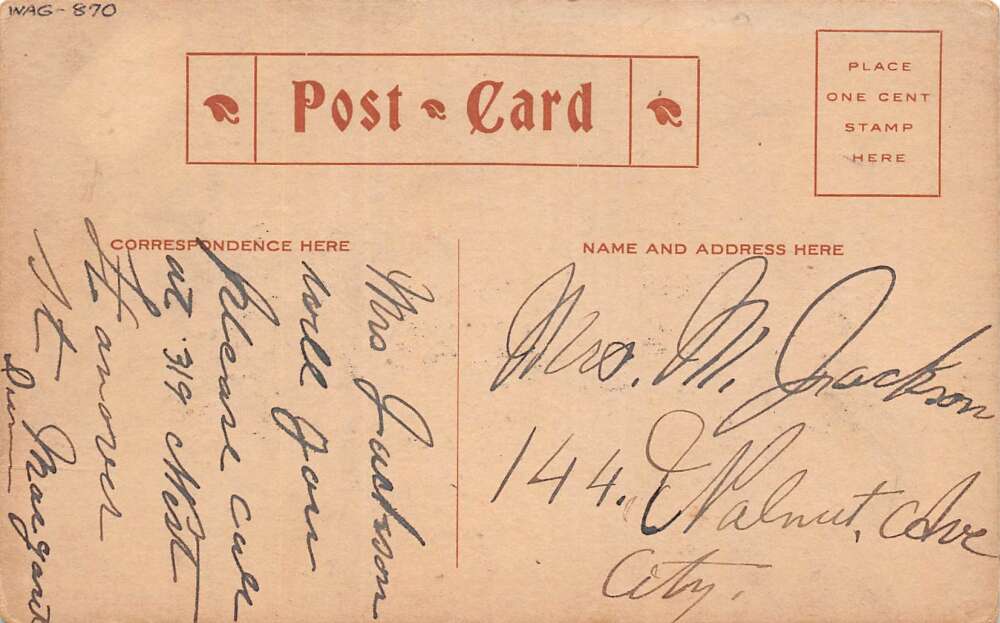 WAG-870
Post Card
PLACE
ONE CENT
STAMP
HERE
CORRESPONDENCE HERE
Mrs Jackson
will you
please call
at 319 West
Hanover
St Margaret
NAME AND ADDRESS HERE
Mrs. M. Jackson
144. Walnut. Ave
City.